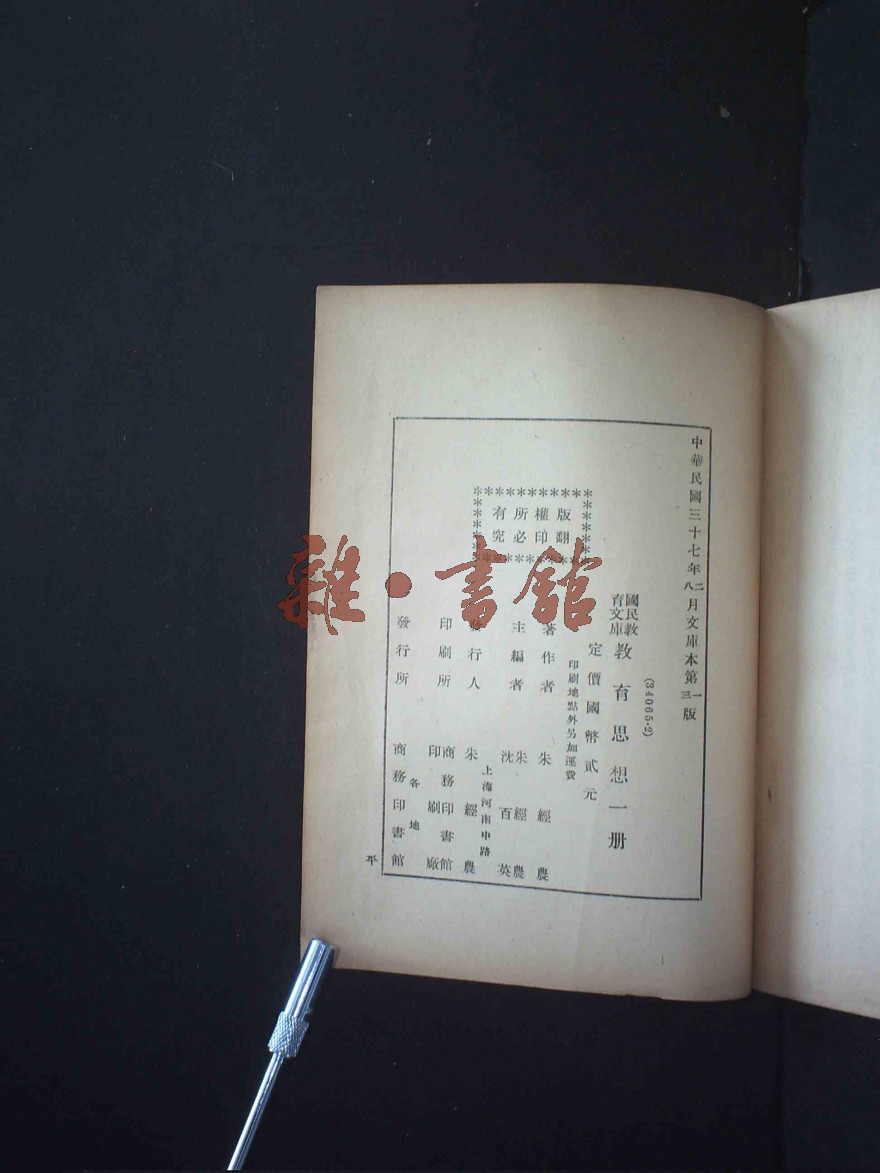 中華民國三十七年二月文庫本第一版
八　三
(34065·2)
國民教育文庫
教育思想一册
定價國幣貳元
印刷地點外另加運費
版權所有
翻印必究
著作者　朱經農
主編者　朱經農　沈百英
上海河南中路
發行人　朱經農
印刷所　商務印書館印刷廠
各地
發行所　商務印書館
平
雜·書館